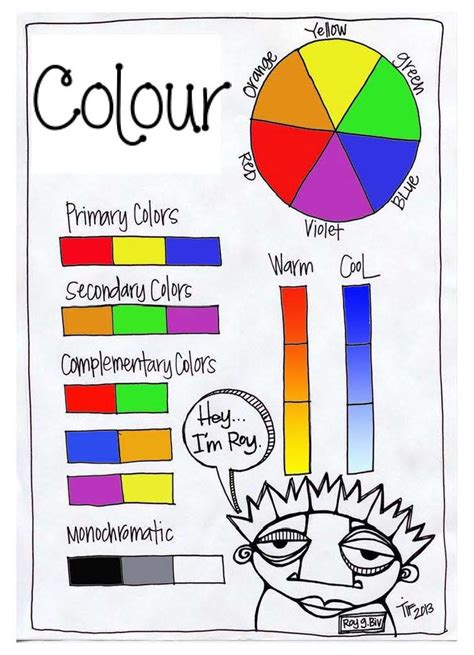 Colour
Yellow
Orange
green
RED
BLUE
Violet
Primary Colors
Secondary Colors
Complementary Colors
Monochromatic
Warm
Cool
Hey...
I'm Roy.
Roy g. Biv
TIF
2013